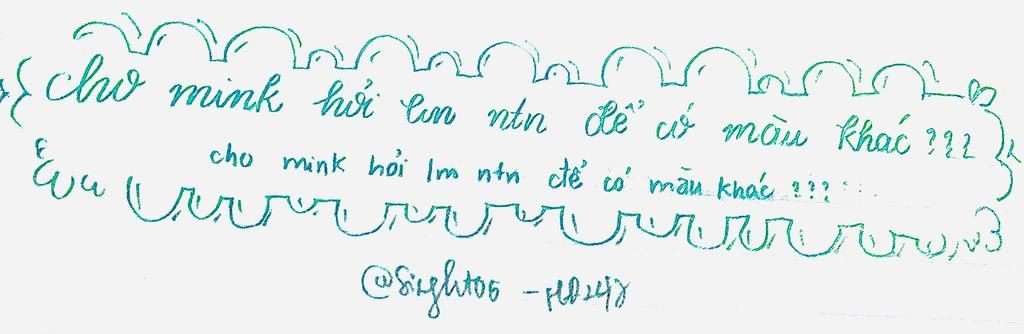 cho mink hỏi lm ntn để có màu khác ???
cho mink hỏi lm ntn để có màu khác ???